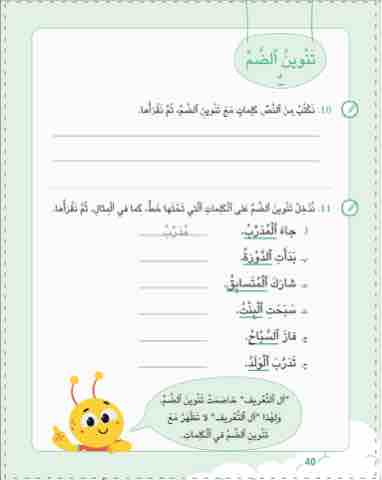 تَنْوينُ ٱلضَّمِّ
10. نَكْتُبُ مِنَ ٱلنَّصِّ كَلِماتٍ مَعَ تَنْوينِ ٱلضَّمِّ، ثُمَّ نَقْرَأُها.
11. نُدْخِلُ تَنْوينَ ٱلضَّمِّ عَلى ٱلْكَلِماتِ ٱلَّتي تَحْتَها خَطٌّ، كَما في ٱلْمِثالِ، ثُمَّ نَقْرَأُها.
أ. جاءَ ٱلْمُدَرِّبُ. مُدَرِّبٌ
ب. بَدَأَتِ ٱلدَّوْرَةُ.
ت. شارَكَ ٱلْمُتَسابِقُ.
ث. سَبَحَتِ ٱلْبِنْتُ.
ج. فازَ ٱلسَّبّاحُ.
ح. تَدَرَّبَ ٱلْوَلَدُ.
"اَل ٱلتَّعْريف" خاصَمَتْ تَنْوينَ ٱلضَّمِّ،
وَلِهٰذا "اَل ٱلتَّعْريف" لا تَظْهَرُ مَعَ
تَنْوينِ ٱلضَّمِّ في ٱلْكَلِماتِ.
40